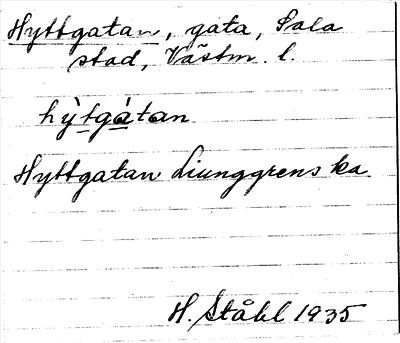 Hyttgatan, gata, Sala
stad, Västm. l.
hỳtgátan
Hyttgatan Liunggrens ka.
H. Ståhl 1935